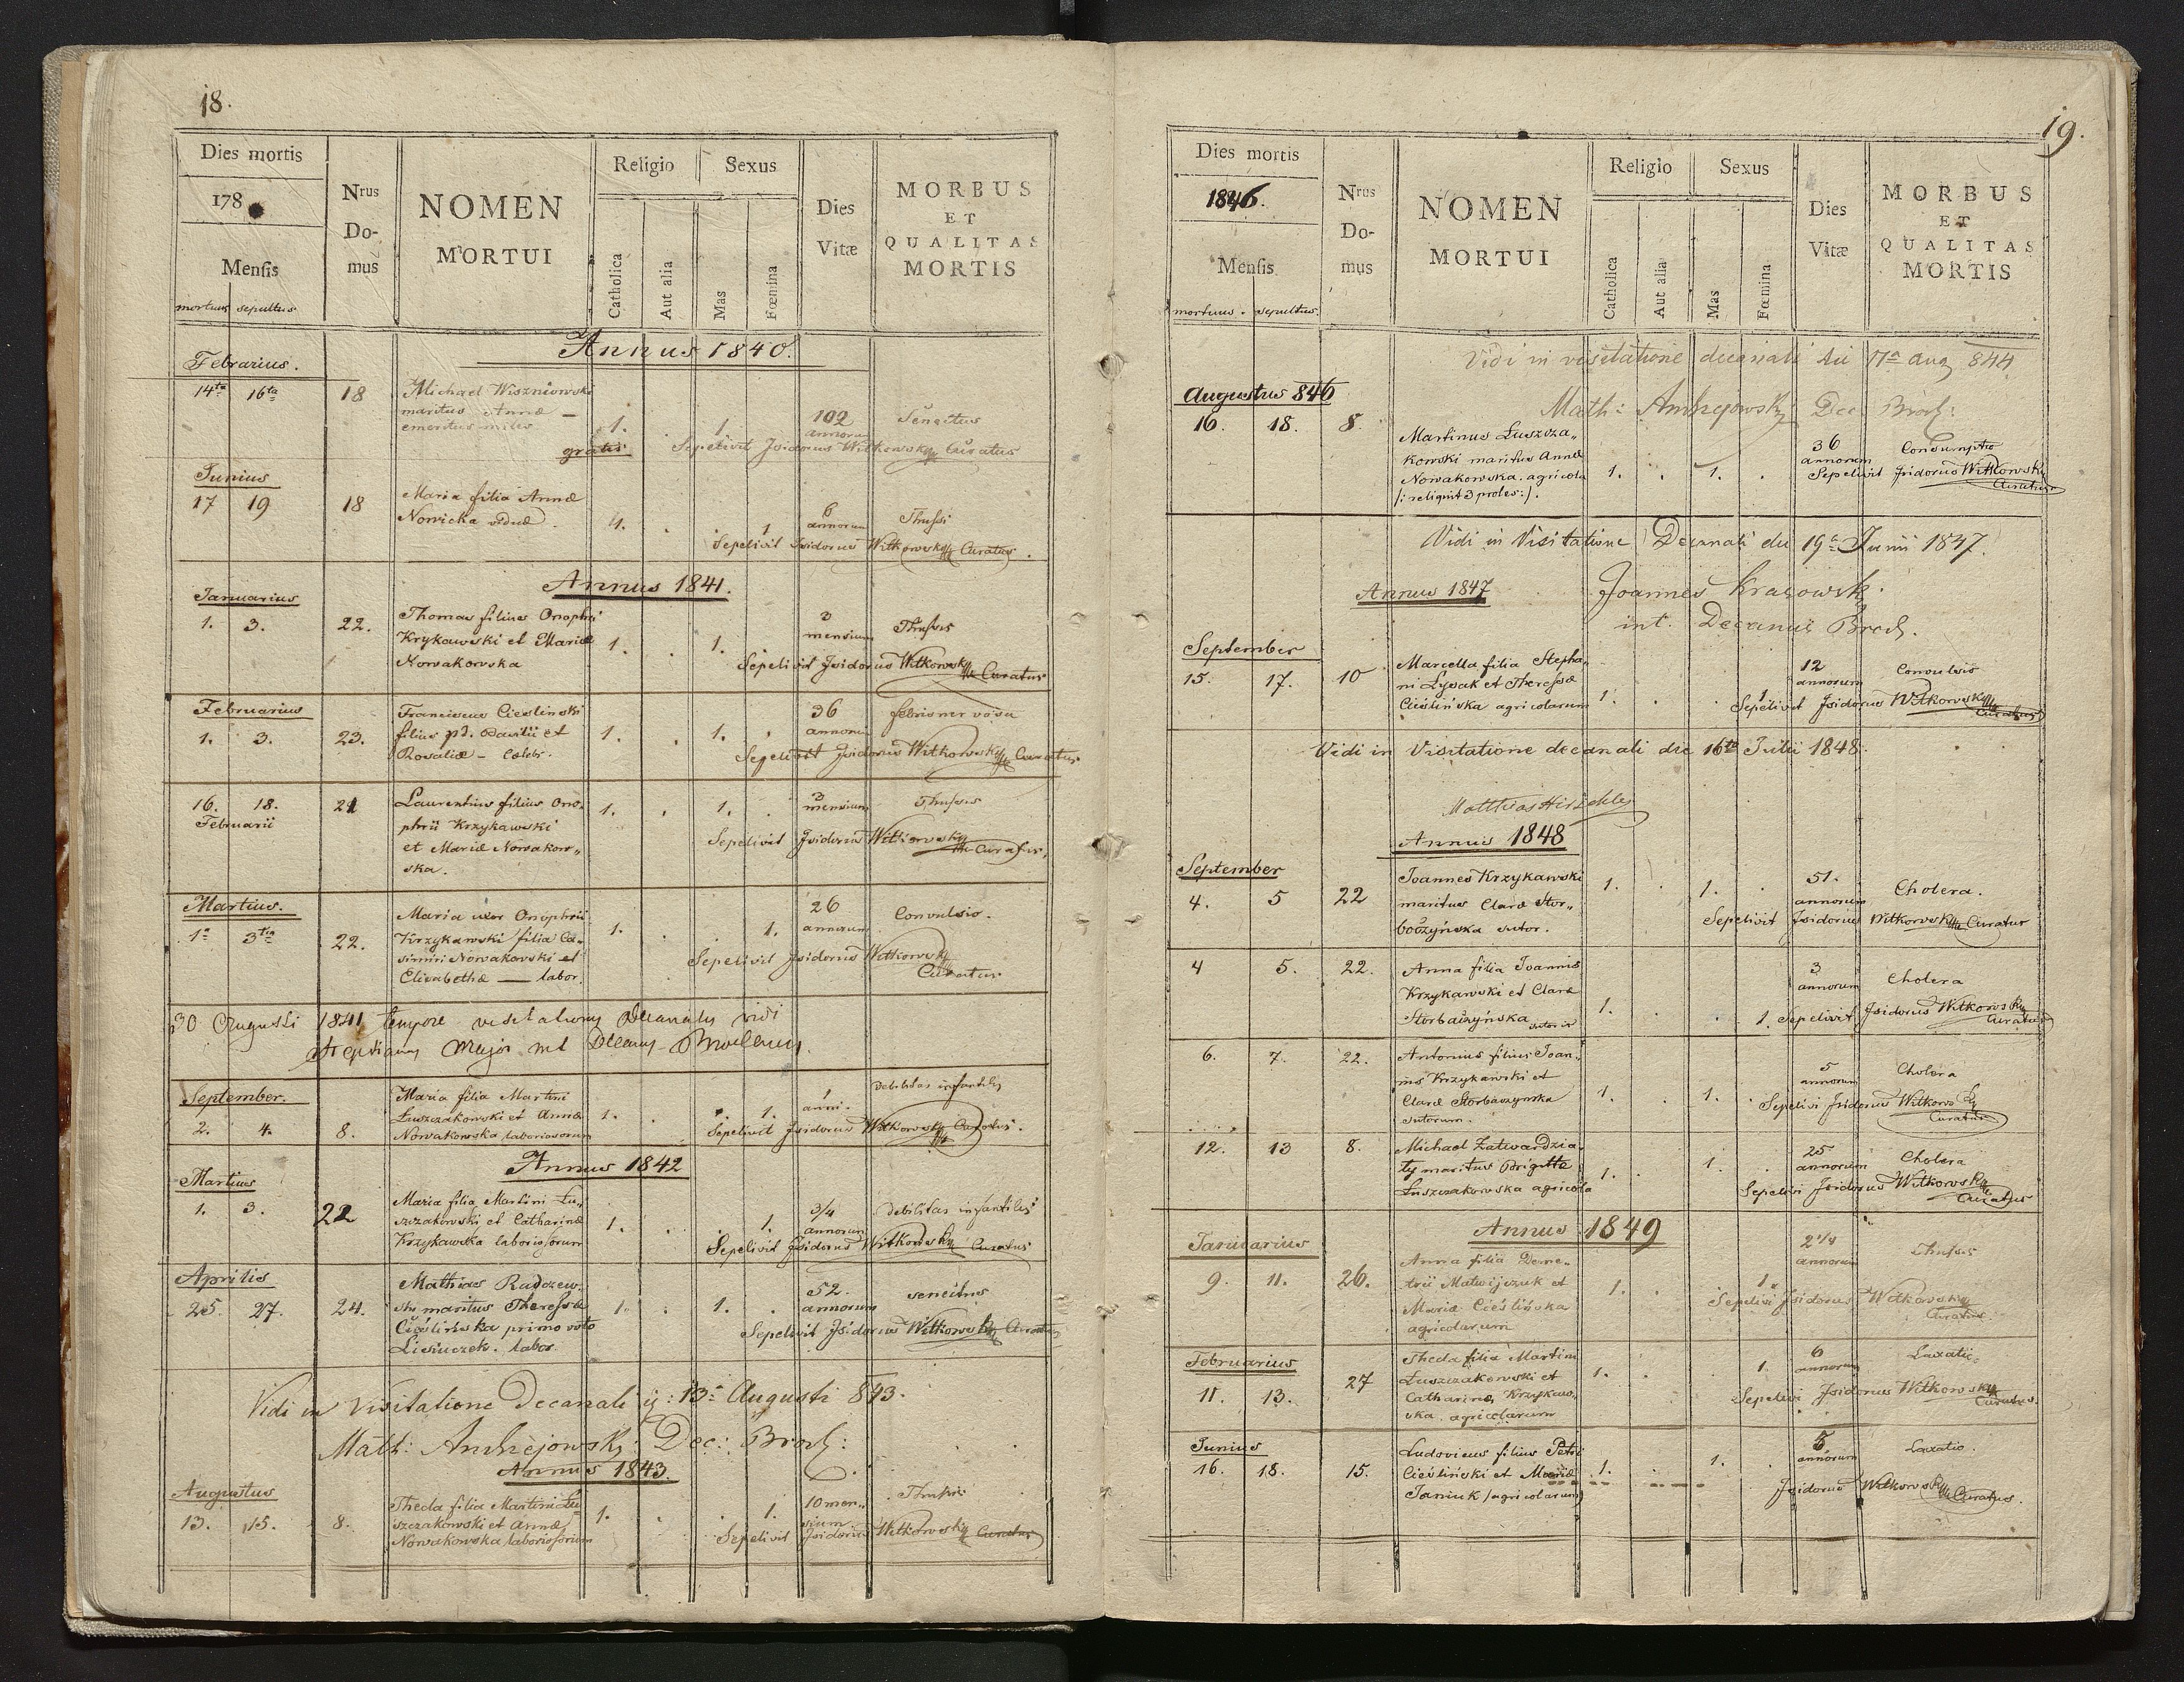 18.
Dies mortis
178
Mensis
mortuus sepultus
Nrus
Do-
mus
NOMEN
MORTUI
Religio
Catholica
Aut alia
Sexus
Mas
Fœmina
Dies
Vitæ
MORBUS
ET
QUALITAS
MORTIS
Annus 1840.
Febrarius.
14ta 16ta 18 Michael Wiszniowski
maritus Annæ —
emeritus miles 1. . 1. 102 annorum Senectus
gratis Sepelivit Isidorus Witkowsky Curatus
Junius
17 19 18 Maria filia Annæ
Nowicka viduæ. 1. . . 1. 6 annorum Thussi
Sepelivit Isidorus Witkowsky Curatus.
Annus 1841.
Januarius
1. 3. 22. Thomas filius Onophri
Krykawski et Mariæ
Nowakowska 1. . 1. 3 mensium Thussis
Sepelivit Isidorus Witkowsky Curatus
Februarius
1. 3. 23. Franciscus Cieslinski
filius pd. Basilii et
Rosaliæ – Celebs. 1. . 1. . 36 annorum febris nervosa
Sepelivit Isidorus Witkowsky Curatus
16. 18. 21 Laurentius filius Ono-
Februarii
phrii Krzykawski
et Mariæ Nowakow„
ska. 1. . 1. . 3 mensium Thussis
Sepelivit Isidorus Witkowsky Curatus,
Martius.
1a 3tia 22. Maria uxor Onophrii
Krzykawski filia Ca-
simiri Nowakowski et
Elisabethæ — labor. 1. . . 1. 26 annorum Convulsio.
Sepelivit Isidorus Witkowsky
Curatus
30 Augusti 1841 tempore visitationis Decanalis vidi
Major
September.
2. 4. 8. Maria filia Martini
Łuszczakowski et Annæ
Nowakowska laboriosorum 1. . . 1. 1 anni. Debilitas infantilis
Sepelivit Isidorus Witkowsky Curatus.
Annus 1842
Martius
1. 3. 22 Maria filia Martini Łu„
szczakowski et Catharinæ
Krzykawska laboriosorum 1. . . 1. 3/4 annorum Debilitas infantilis
Sepelivit Isidorus Witkowsky Curatus
Aprilis
25. 27. 24. Mathias Radozew.
ski maritus Theressæ
Cieślińska primo voto
Lisiuczek. labor. 1. . 1. . 52. annorum senectus
Sepelivit Isidorus Witkowsky Curatus
Vidi in Visitatione Decanali 13a Augusti 843.
Math: Andrzejowsky Dec: Brod:
Annus 1843.
Augustus
13. 15. 8. Theda filia Martini Łu
szczakowski et Annæ
Nowakowska laboriosorum 1. . . 1. 10 men„
sium. Thussis
Sepelivit Isidorus Witkowsky Curatus
19.
Dies mortis
1846.
Mensis
mortuus. sepultus.
Nrus
Do-
mus
NOMEN
MORTUI
Religio
Catholica
Aut alia
Sexus
Mas
Fœmina
Dies
Vitæ
MORBUS
ET
QUALITAS
MORTIS
Vidi in visitatione decanali die 17a Aug 844
Math: Andrzejowsky Dec Brod:
Augustus 846
16. 18. 8. Martinus Łuszcza„
kowski maritus Annæ
Nowakowska. agricola
/: reliquit 3 proles:/. 1. . 1. . 36 annorum Consumptio
Sepelivit Isidorus Witkowsky
Curatus
Vidi in Visitatione Decanali die 19a Junii 1847.
Annus 1847
Joannes Krasowski
int. Decanus Brod.
September
15. 17. 10 Marcella filia Stepha„
ni Lysak et Theressæ
Cieślińska agricolarum 1. . . 1. 12 annorum Convulsio
Sepelivit Isidorus Witkowsky
Curatus
Vidi in Visitatione decanali die 16ta Julii 1848.
Matthias
Annus 1848
September
4. 5 22 Joannes Krzykawski
maritus Claræ Stor„
boczyńska sutor. 1. . 1. . 51. annorum Cholera.
Sepelivit Isidorus Witkowsky Curatus
4 5. 22. Anna filia Joannis
Krzykawski et Claræ
Storbaczyńska sutoris 1. . . 1. 3 annorum Cholera
Sepelivit Isidorus Witkowsky
Curatus
6. 7. 22. Antonius filius Joan„
nis Krzykawski et
Claræ Storbaczynska
sutorum. 1. . 1. . 5 annorum Cholera
Sepelivi Isidorus Witkowsky
Curatus
12. 13 8. Michael Zatwardzia„
ły maritus Brigittæ
Łuszczakowska agricola 1. . 1. . 25 annorum Cholera
Sepelivi Isidorus Witkowsky
Curatus
Annus 1849
Januarius
9. 11. 26. Anna filia Deme„
trii Matwijczuk et
Mariæ Cieślińska
agricolarum 1. . 1. 2 1/4 annorum Thussis
Sepelivi Isidorus Witkowsky
Curatus.
Februarius
11. 13. 27 Theda filia Martini
Łuszczakowski et
Catharinæ Krzykaw„
ska. agricolarum 1. . . 1. 6 annorum Laxatio
Sepelivi Isidorus Witkowsky
Curatus.
Junius
16. 18. 15. Ludovicus filius Petri
Cieśliński et Mariæ
Janiuk /agricolarum/ 1. . 1. . 5 annorum Laxatio.
Isidorus Witkowsky Curatus.